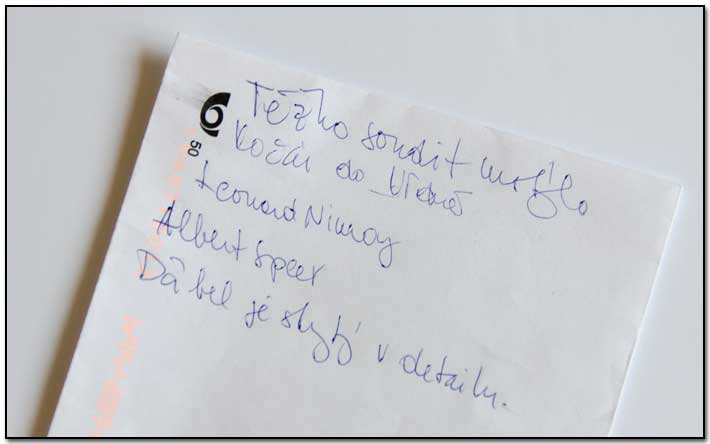 50
Těžko soudit
Kočár do Vídně
Leonard Nimoy
Albert Speer
Ďábel je skrytý v detailu.